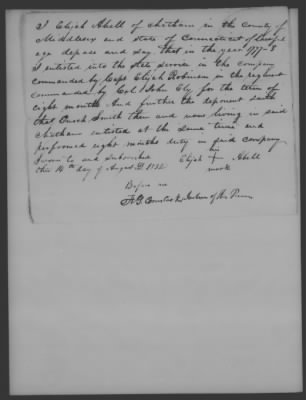 I Elijah Abell of Chatham in the County of
Middlesex and State of Connecticut of Lawful
age depose and say that in the year 1777-8
I enlisted into the State service in the company
commanded by Capt Elijah Robinson in the regiment
commanded by Col John Ely for the term of
eight months And further the deponent saith
that Enoch Smith then and now living in said
Chatham enlisted at the same time and
performed eight months duty in said company
Sworn to and subscribed his
this 14th day of August 1832 Elijah + Abell
mark
Before me
F. G. Comstock